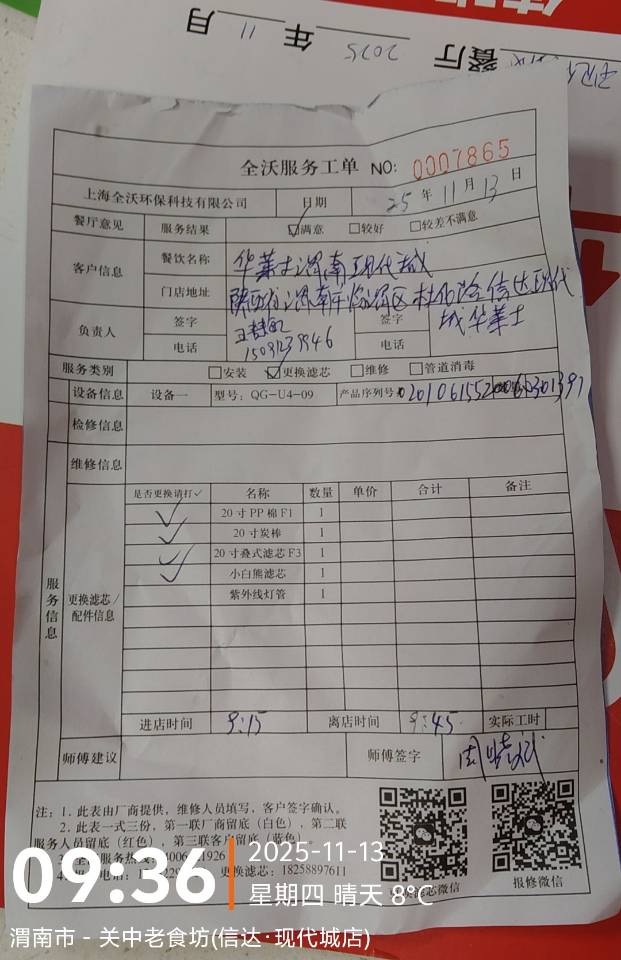 餐厅 2025 年 11 月
全沃服务工单 NO: 0007865
上海全沃环保科技有限公司 日期 25 年 11 月 13 日
餐厅意见 服务结果 ☑满意 □较好 □较差不满意
客户信息 餐饮名称 华莱士渭南现代城
门店地址 陕西省渭南市临渭区杜化路信达现代
城华莱士
负责人 签字 签字
电话 15091239946 电话
服务类别 □安装 ☑更换滤芯 □维修 □管道消毒
设备信息 设备一 型号: QG-U4-09 产品序列号
检修信息
维修信息
服务信息 更换滤芯/配件信息
是否更换请打✓ 名称 数量 单价 合计 备注
✓ 20寸PP棉F1 1
✓ 20寸炭棒 1
✓ 20寸叠式滤芯F3 1
✓ 小白熊滤芯 1
紫外线灯管 1
进店时间 9:15 离店时间 9:45 实际工时
师傅建议 师傅签字
注: 1. 此表由厂商提供, 维修人员填写, 客户签字确认。
2. 此表一式三份, 第一联厂商留底 (白色), 第二联
服务人员留底 (红色), 第三联客户留底 (蓝色)
服务热线
更换滤芯: 18258897611
更换滤芯微信 报修微信
09:36
2025-11-13
星期四 晴天 8℃
渭南市 - 关中老食坊(信达·现代城店)